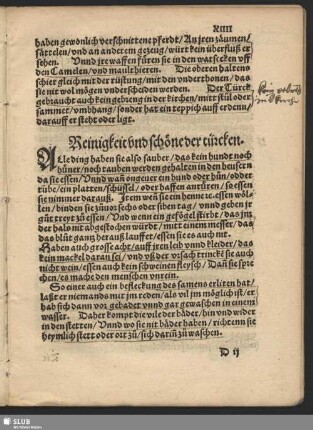 XIIII
haben gewonlich verschnittene pferdt/ An jren zäumen/
sättelen/ vnd an anderem gezeug/ würt kein überfluß er
sehen. Vnnd jre waffen füren sie in den watsecken vff
den Camelen/ vnd mauleseleren. Die oberen haltens
schier gleich mit der rüstung/ mit den vnderthonen/ das
sie nit wol mögen vnderscheiden werden. Der Türck
gebraucht auch kein gebreng in der kirchen/ mitt stül oder
sammet/ vmbhang/ sonder hat ein teppich auff erden/
darauff er steht oder ligt.
Reinigkeit vnd schöne der türcken.
Alle ding haben sie also sauber/ das kein hundt noch
hüner/ noch tauben werden gehalten in den heusern
da sie essen/ Vnnd wañ ongeuer ein hund oder hůn/ odder
rübe/ ein platten/ schüssel/ oder haffen anrüren/ so essen
sie nimmer darauß. Item weñ sie ein henne wessen wöl-
len/ binden sie zůuor sechs oder siben tag/ vnnd geben jr
gůt treyt zů essen/ Vnd wenn ein gefögel stirbt/ das jm
der hals nit abgestochen würdt/ mitt einem messer/ das
das blůt gantz herauß laufft/ essen sie es auch nit.
Haben auch grosse acht/ auff jren leib vnnd kleider/ das
kein mackel daran sei/ vnd vß der vrsach trincke sie auch
nicht wein/ essen auch kein schweinen fleysch/ Dañ sie spre
chen/ es mache den menschen vnrein.
So einer auch ein befleckung des samens erliten hat/
laßt er niemands mit jm reden/ als vil jm möglich ist/ er
hab sich dann vor gebadet vnnd gar gewaschen in einem
wasser. Daher kompt die vile der bäder/ hin vnd wider
in den stetten/ Vnnd wo sie nit bäder haben/ richtenn sie
heymlich stett oder ort zů/ sich dariñ zů waschen.
D ij
SLUB